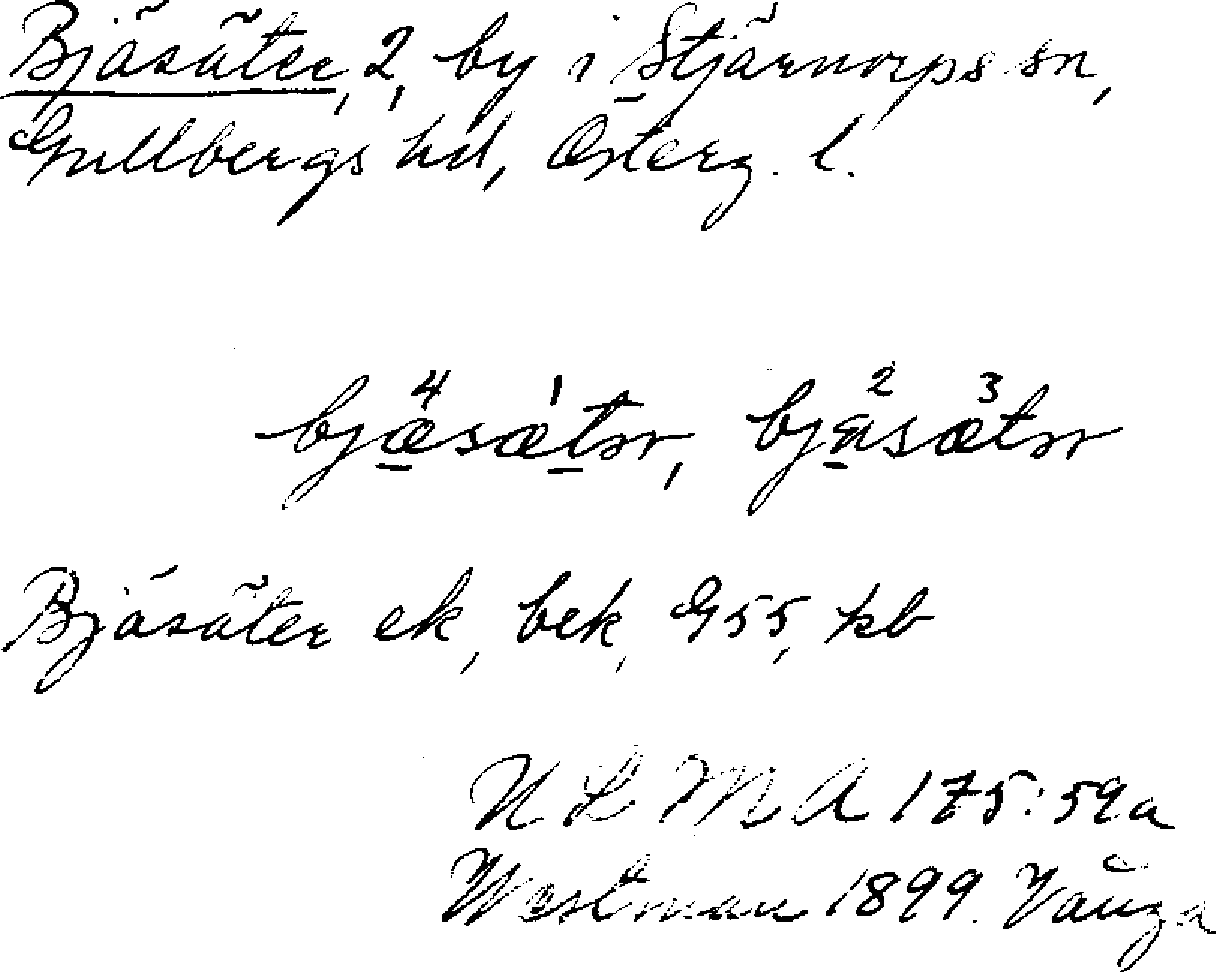 Bjäsäter, 2, by i Stjärnorps sn,
Gullbergs hd, Österg. l.
bjæ⁴sæ¹tər, bjä²sæ³tər
Bjäsäter ek, bek, G55, kb
ULMA 175:59a
Westman 1899. Vånga